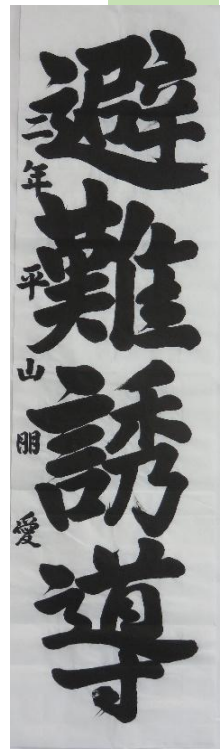 避難誘導
二年 平山朋愛